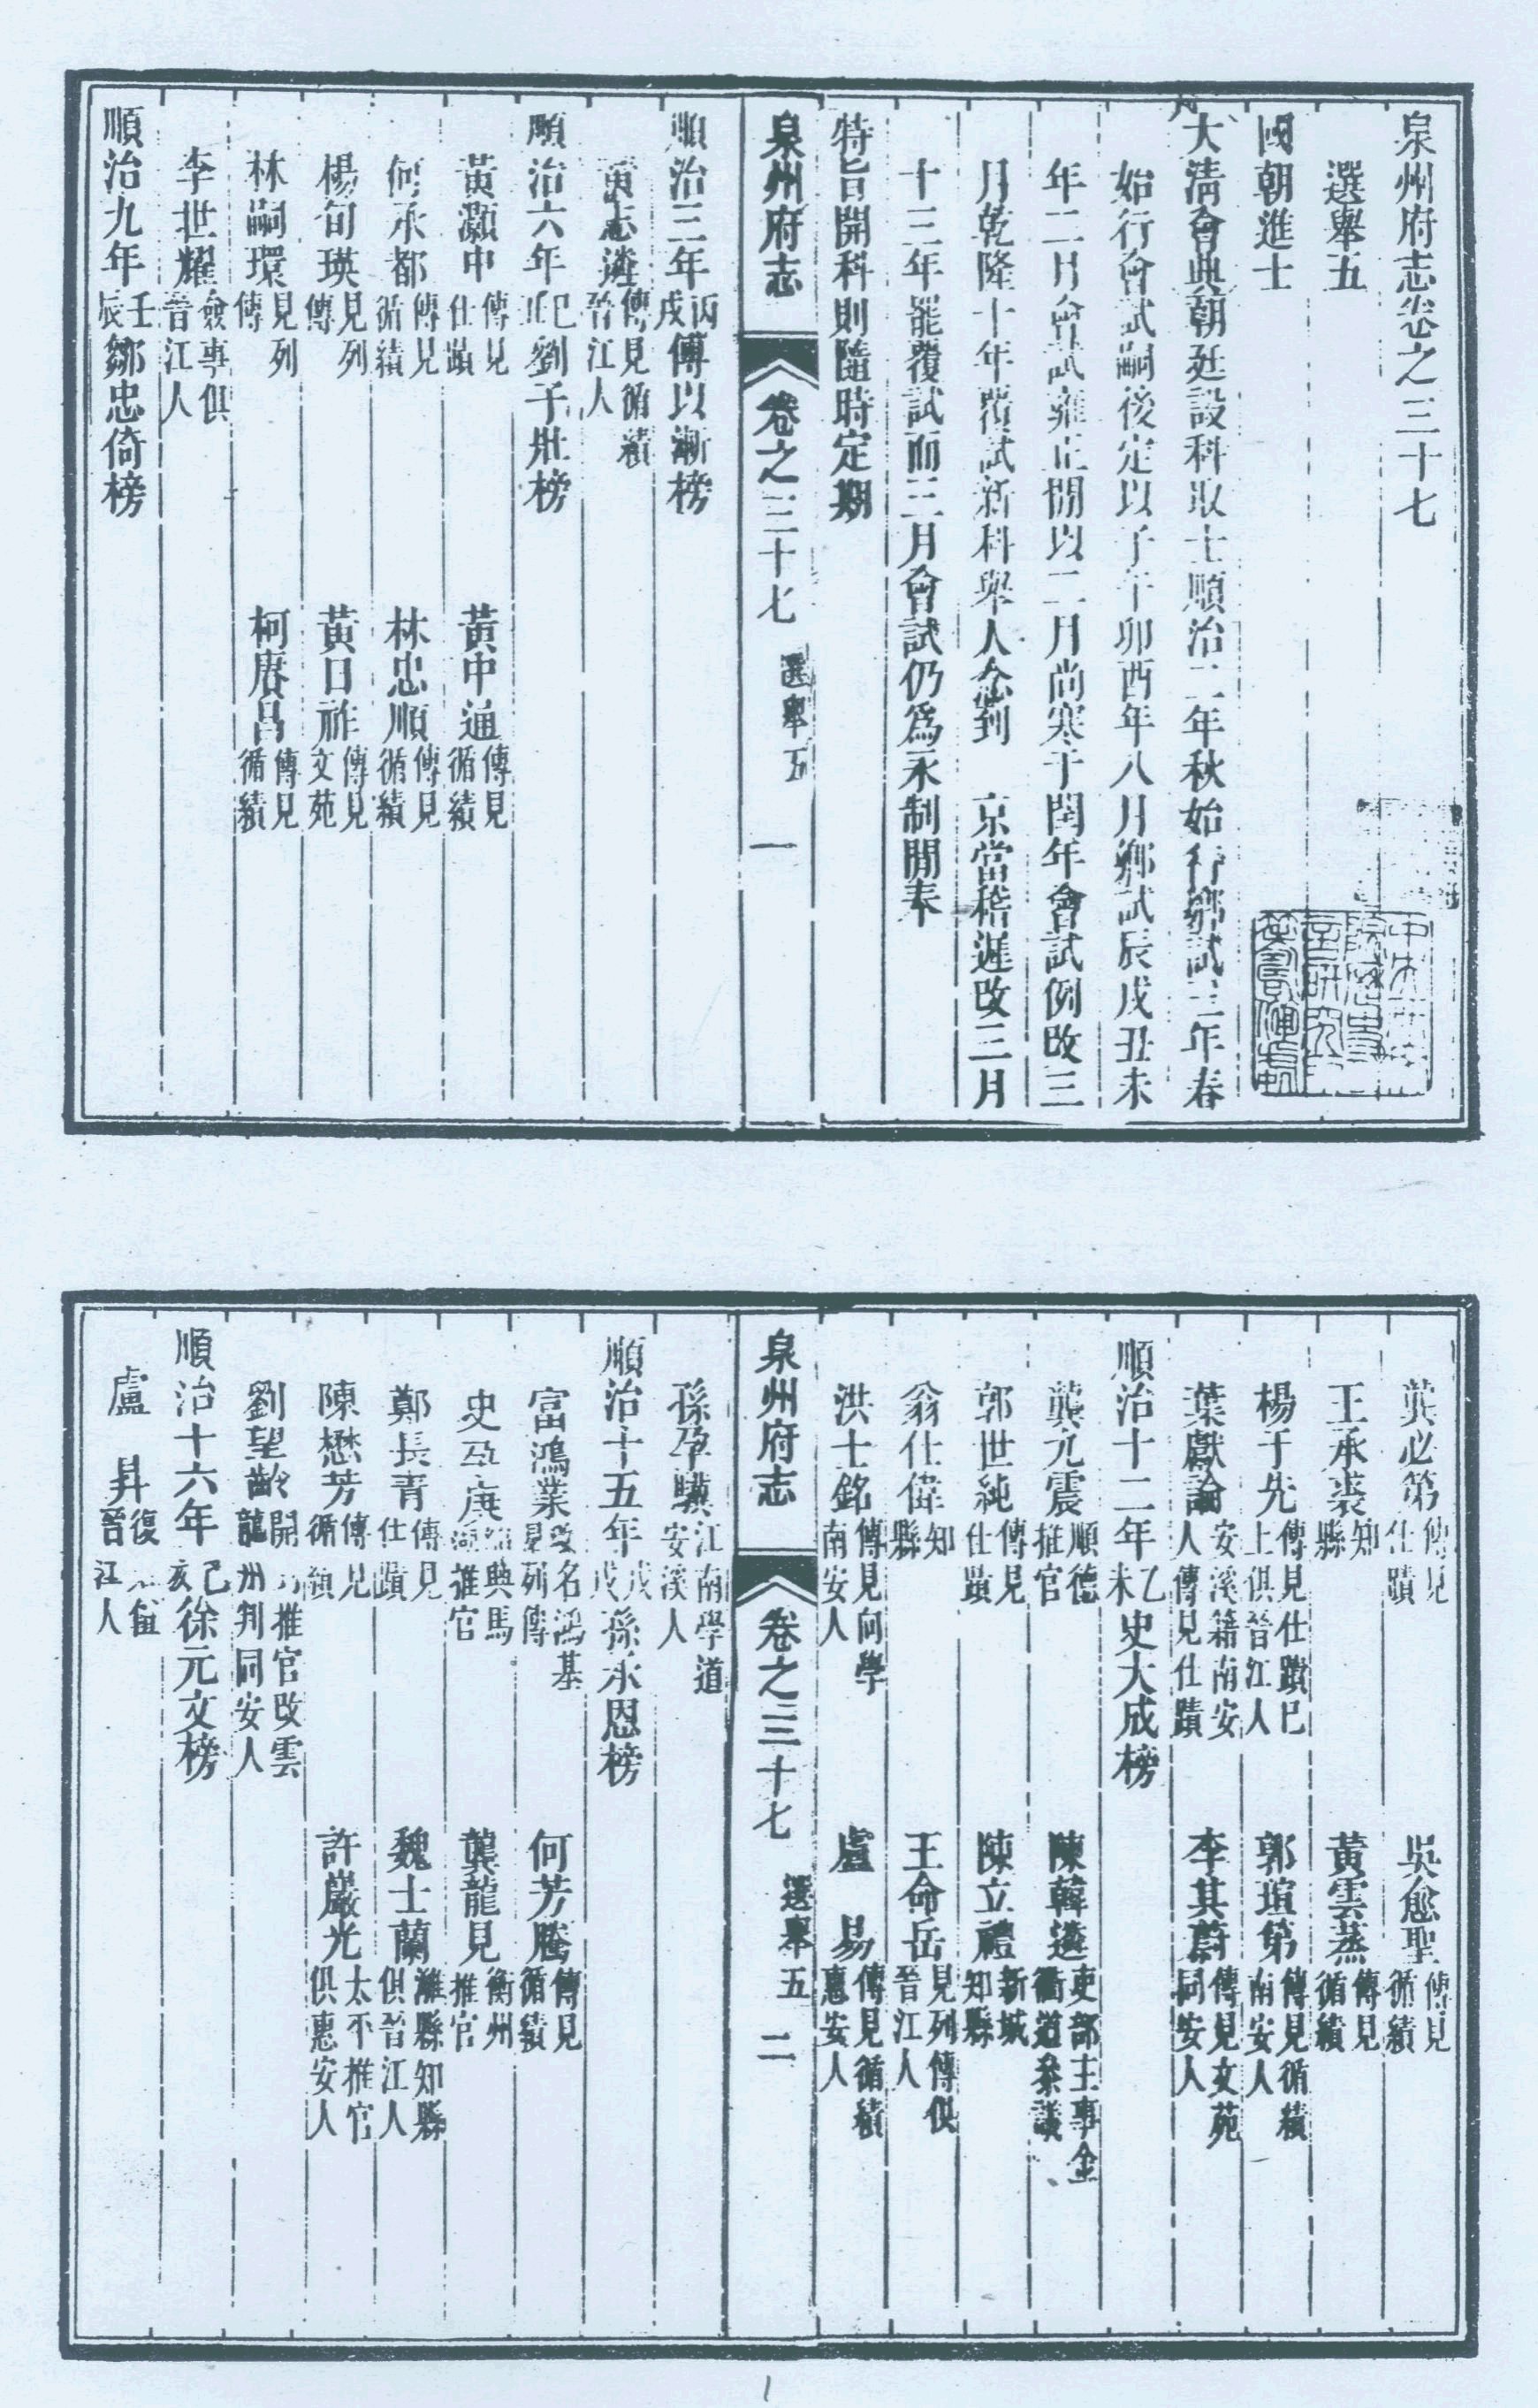 泉州府志卷之三十七
選舉五
國朝進士
大淸會典朝廷設科取士順治二年秋始行鄉試三年春
始行會試嗣後定以子午卯酉年八月鄉試辰戌丑未
年二月會試雍正間以二月尚寒于閏年會試例改三
月乾隆十年覆試新科舉人念到 京當稽遲改三月
十三年罷覆試而三月會試仍爲永制間奉
特旨開科則隨時定期
泉州府志 卷之三十七 選舉五 一
順治三年丙戌傅以漸榜
黃志遴傳見循績晉江人
順治六年己丑劉子壯榜
黃灝中傳見仕蹟 黃中通傳見循績
何承都傳見循績 林忠順傳見循績
楊旬瑛見列傳 黃日祚傳見文苑
林嗣環見列傳 柯膺昌傳見循績
李世耀僉事俱晉江人
順治九年壬辰鄒忠倚榜
龔必第傳見仕蹟 吳愈聖傳見循績
王承裘知縣 黃雲蒸傳見循績
楊于先傳見仕蹟已上俱晉江人 郭瑄第傳見循績南安人
葉獻論安溪籍南安人傳見仕蹟 李其蔚傳見文苑同安人
順治十二年乙未史大成榜
龔元震順德推官 陳韓遴吏部主事金衢道叅議
郭世純傳見仕蹟 陳立禮新城知縣
翁仕偉知縣 王命岳見列傳俱晉江人
洪士銘傳見向學南安人 盧 易傳見循績惠安人
泉州府志 卷之三十七 選舉五 二
孫孕驥江南學道安溪人
順治十五年戊戌孫承恩榜
富鴻業改名鴻基見列傳 何芳騰傳見循績
史孕庚興馬推官 龔龍見衡州推官
鄭長青傳見仕蹟 魏士蘭濰縣知縣俱晉江人
陳懋芳傳見循績 許巖光太不推官俱惠安人
劉望齡開推官改雲龍州判同安人
順治十六年己亥徐元文榜
盧 昇復晉江人
1